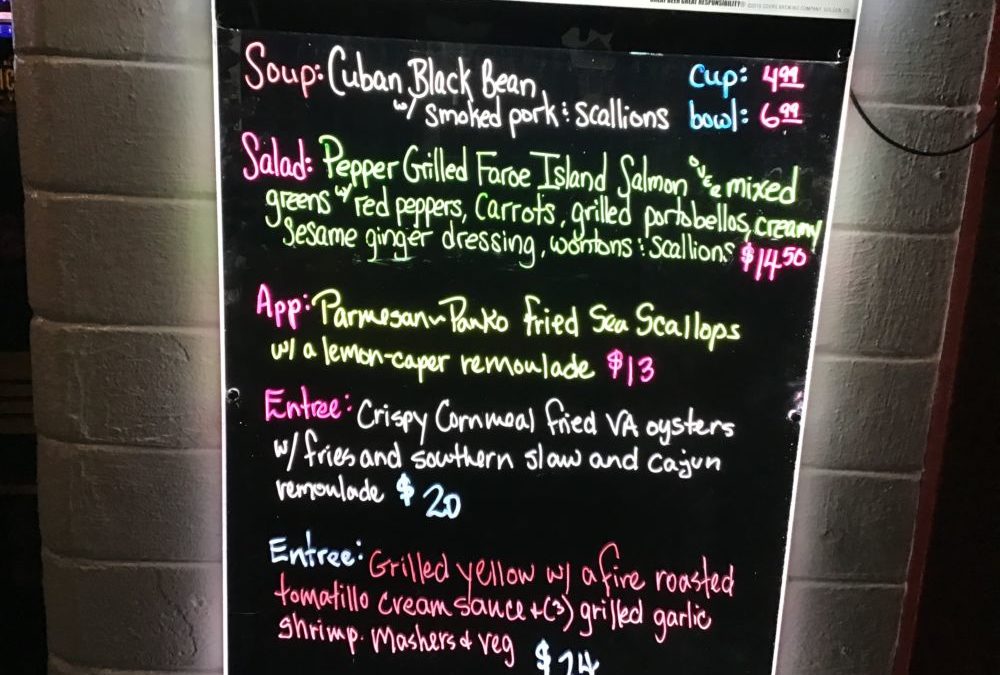 GREAT BEER GREAT RESPONSIBILITY® ©2015 COORS BREWING COMPANY, GOLDEN, CO
Soup: Cuban Black Bean cup: 4.99
w/ smoked pork : scallions bowl: 6.99
Salad: Pepper Grilled Faroe Island Salmon over mixed
greens w/ red peppers, carrots, grilled portobellos, creamy
sesame ginger dressing, wontons : scallions $14.50
App: Parmesan~Panko fried Sea Scallops
w/ a lemon-caper remoulade $13
Entree: Crispy Cornmeal fried VA oysters
w/ fries and southern slaw and cajun
remoulade $20
Entree: Grilled yellow w/ a fire roasted
tomatillo cream sauce + (3) grilled garlic
shrimp. Mashers + veg $24